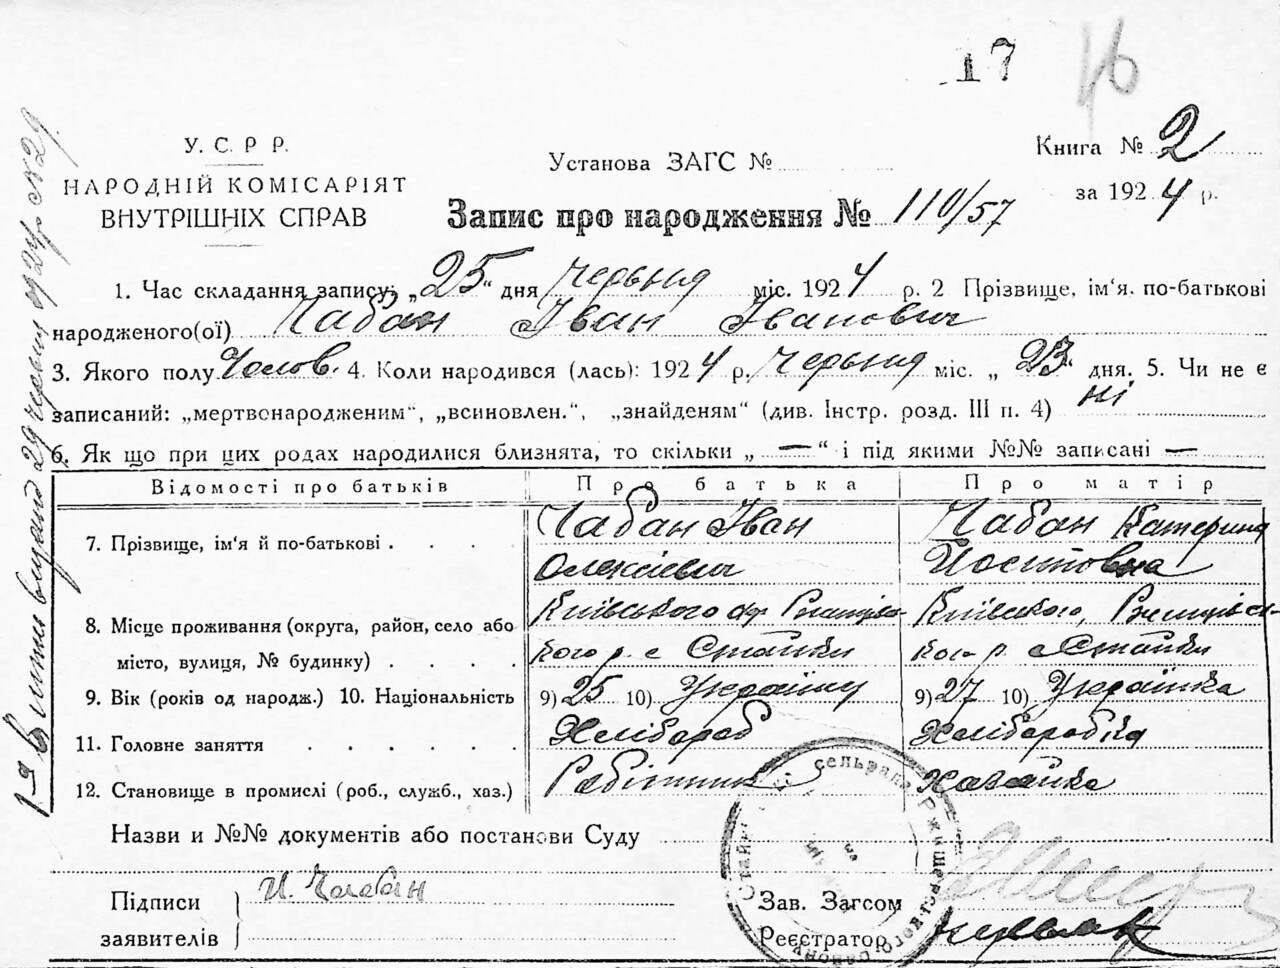 17 46
У. С. Р Р.
НАРОДНІЙ КОМІСАРІЯТ
ВНУТРІШНІХ СПРАВ
Установа ЗАГС №
Книга № 2
за 1924 р.
Запис про народження № 110/57
1. Час складання запису: „25“ дня Червня міс. 1924 р. 2 Прізвище, ім'я, по-батькові
народженого(ої) Чабан Іван Іванович
3. Якого полу Чолов. 4. Коли народився (лась): 1924 р. Червня міс. „23“ дня. 5. Чи не є
записаний: „мертвонародженим“, „всиновлен.“, „знайденям“ (див. Інстр. розд. III п. 4) ні
6. Як що при цих родах народилися близнята, то скільки „—“ і під якими №№ записані —
Відомості про батьків Про батька Про матір
7. Прізвище, ім'я й по-батькові . . . . Чабан Іван Чабан Катерина
Олексієвич Йосиповна
8. Місце проживання (округа, район, село або Київського окр. Ржищів- Київского, Ржищівсь-
місто, вулиця, № будинку) . . . . кого р. с Стайки кого р. с Стайки
9. Вік (років од народж.) 10. Національність 9) 25 10) Українц 9) 27 10) Українка
11. Головне заняття . . . . . . Хлібороб Хліборобка
12. Становище в промислі (роб., служб., хаз.) Робітник Хазяйка
Назви и №№ документів або постанови Суду
Підписи
заявителів
И. Чабан
Зав. Загсом
Реєстратор
сельрада Ржищевського району
1924 29 №29